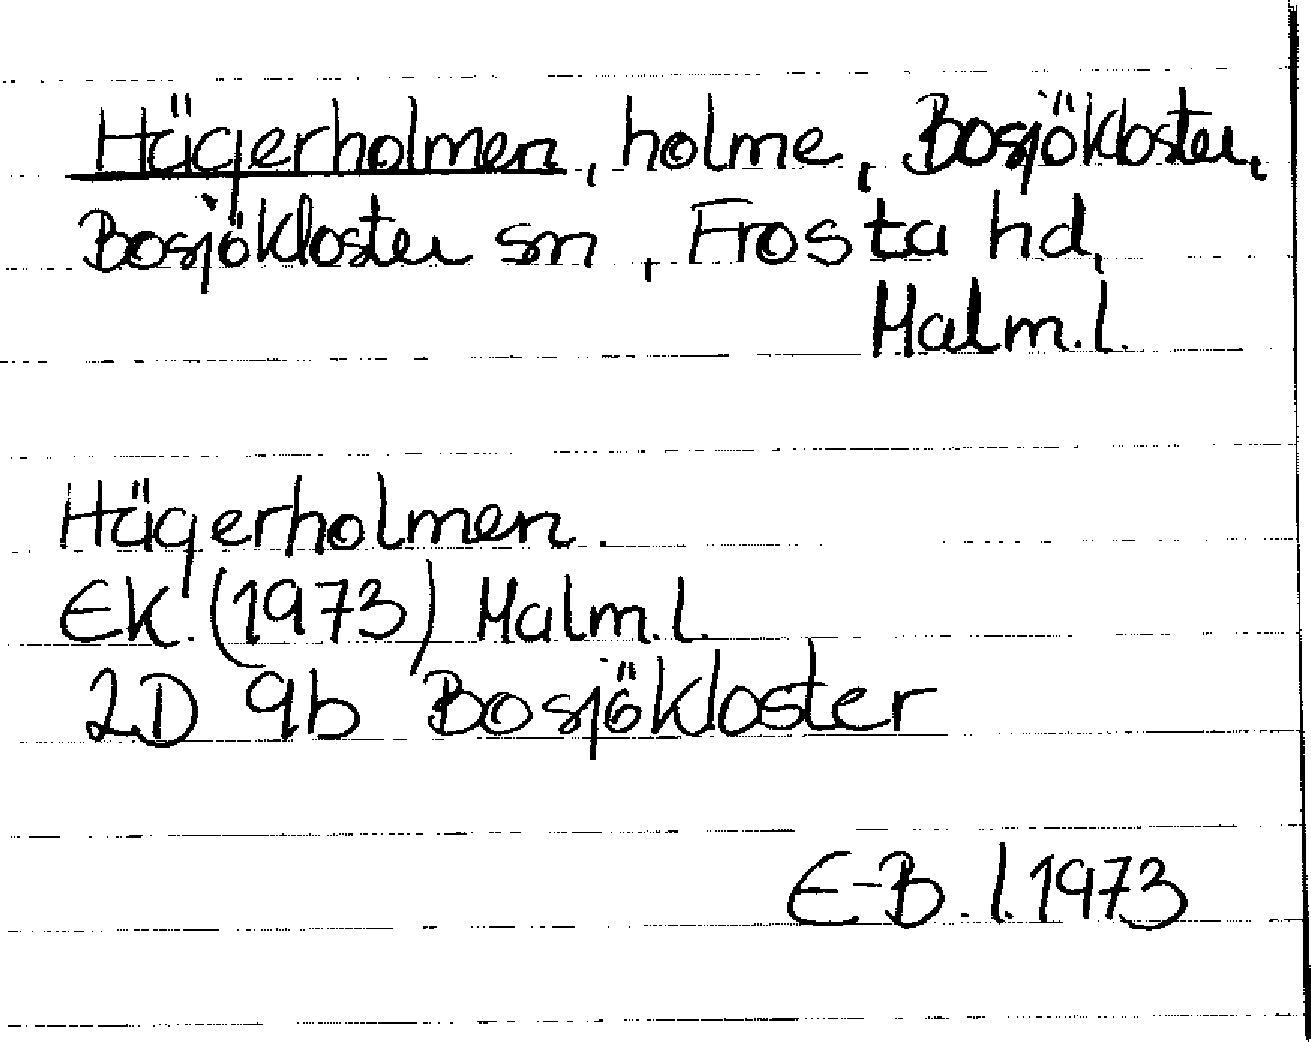 Hägerholmen, holme, Bosjökloster,
Bosjökloster sn, Frosta hd,
Malm.l.
Hägerholmen.
EK. (1973) Malm.l.
2D 9b Bosjökloster
E-B. l. 1973